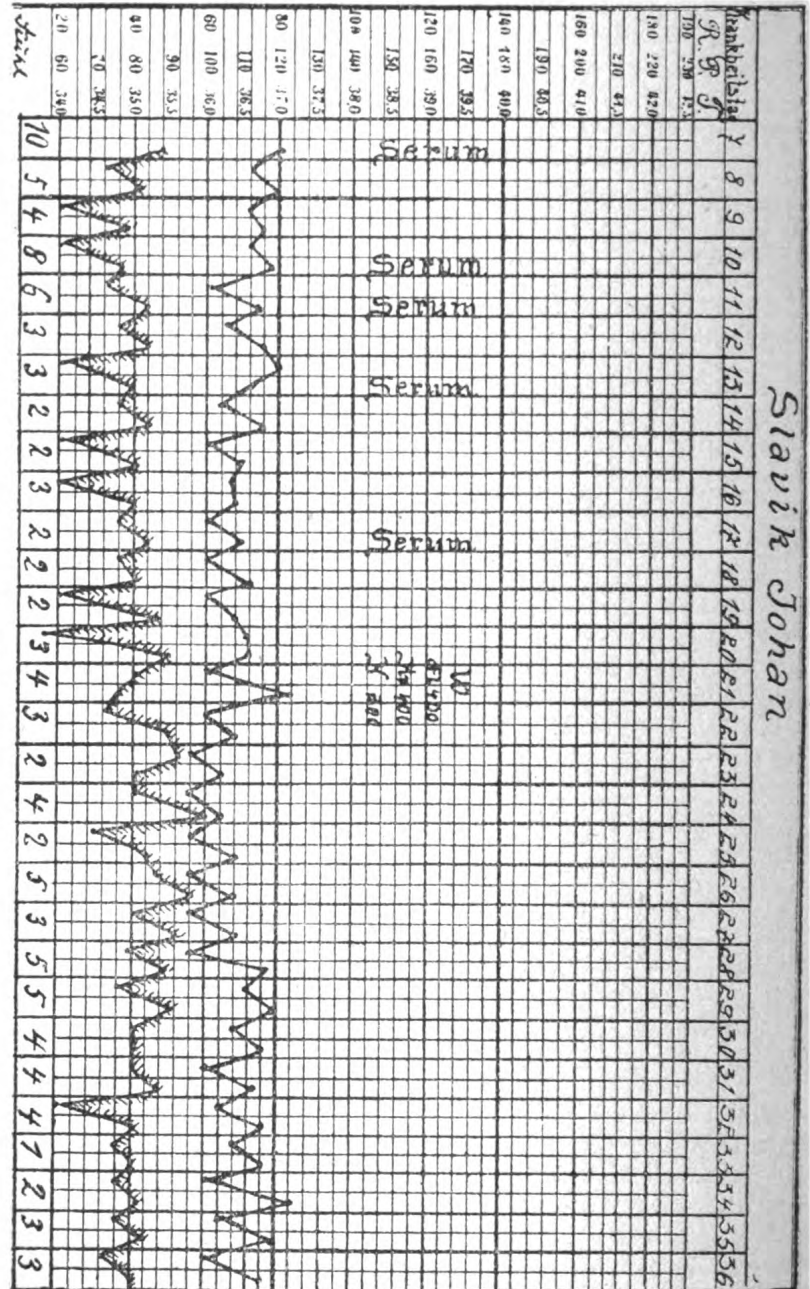 Slavik Johan
Krankheitstag 7 8 9 10 11 12 13 14 15 16 17 18 19 20 21 22 23 24 25 26 27 28 29 30 31 32 33 34 35 36
R. P. T.
180 220 42.0
210 41.5
160 200 41.0
190 40.5
140 180 40.0
170 39.5
120 160 39.0
150 38.5
100 140 38.0
130 37.5
80 120 37.0
110 36.5
60 100 36.0
90 35.5
40 80 35.0
70 34.5
20 60 34.0
Serum
Serum
Serum
Serum
Serum
W
400
Stühle 10 5 4 8 6 3 3 2 2 3 2 2 2 3 4 3 2 4 2 5 3 5 5 4 4 4 1 2 3 3